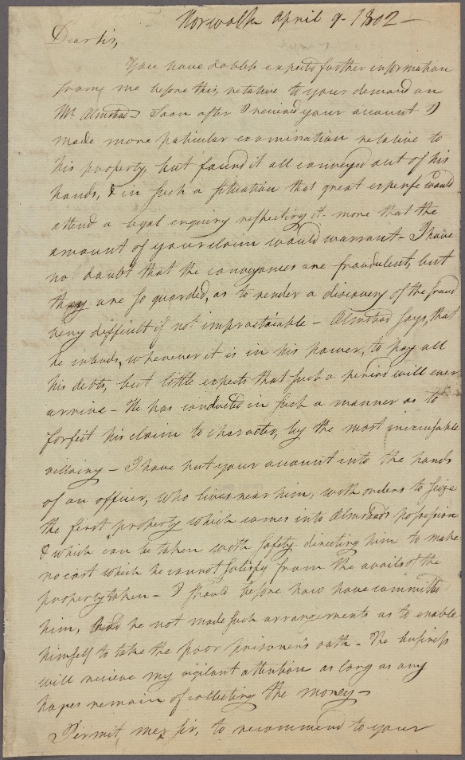 Norwalk April 9. 1802 —
Dear Sir,
You have doubtless expected further information
from me before this, relative to your demand on
Mr. Olmstead. Soon after I received your account I
made more particular examination relative to
his property, but found it all conveyed out of his
hands, & in such a situation that great expense would
attend a legal enquiry respecting it - more that the
amount of your claim would warrant - I have
no doubt that the conveyances are fraudulent, but
they are so guarded, as to render a discovery of the fraud
very difficult if not impracticable - Olmstead says, that
he intends, whenever it is in his power, to pay all
his debts, but little expects that such a period will ever
arrive - He has conducted in such a manner as to
forfeit his claim to character, by the most inexcusable
villainy - I have put your account into the hands
of an officer, who lives near him, with orders to seize
the first property which comes into Olmstead's possession
& which can be taken with safety, directing him to make
no cost which he cannot satisfy from the avails of the
property taken - I should before now have committed
him, had he not made such arrangements as to enable
himself to take the poor prisoner's oath - The business
will recieve my vigilant attention as long as any
hopes remain of collecting the money -
Permit, me, Sir, to recommend to your